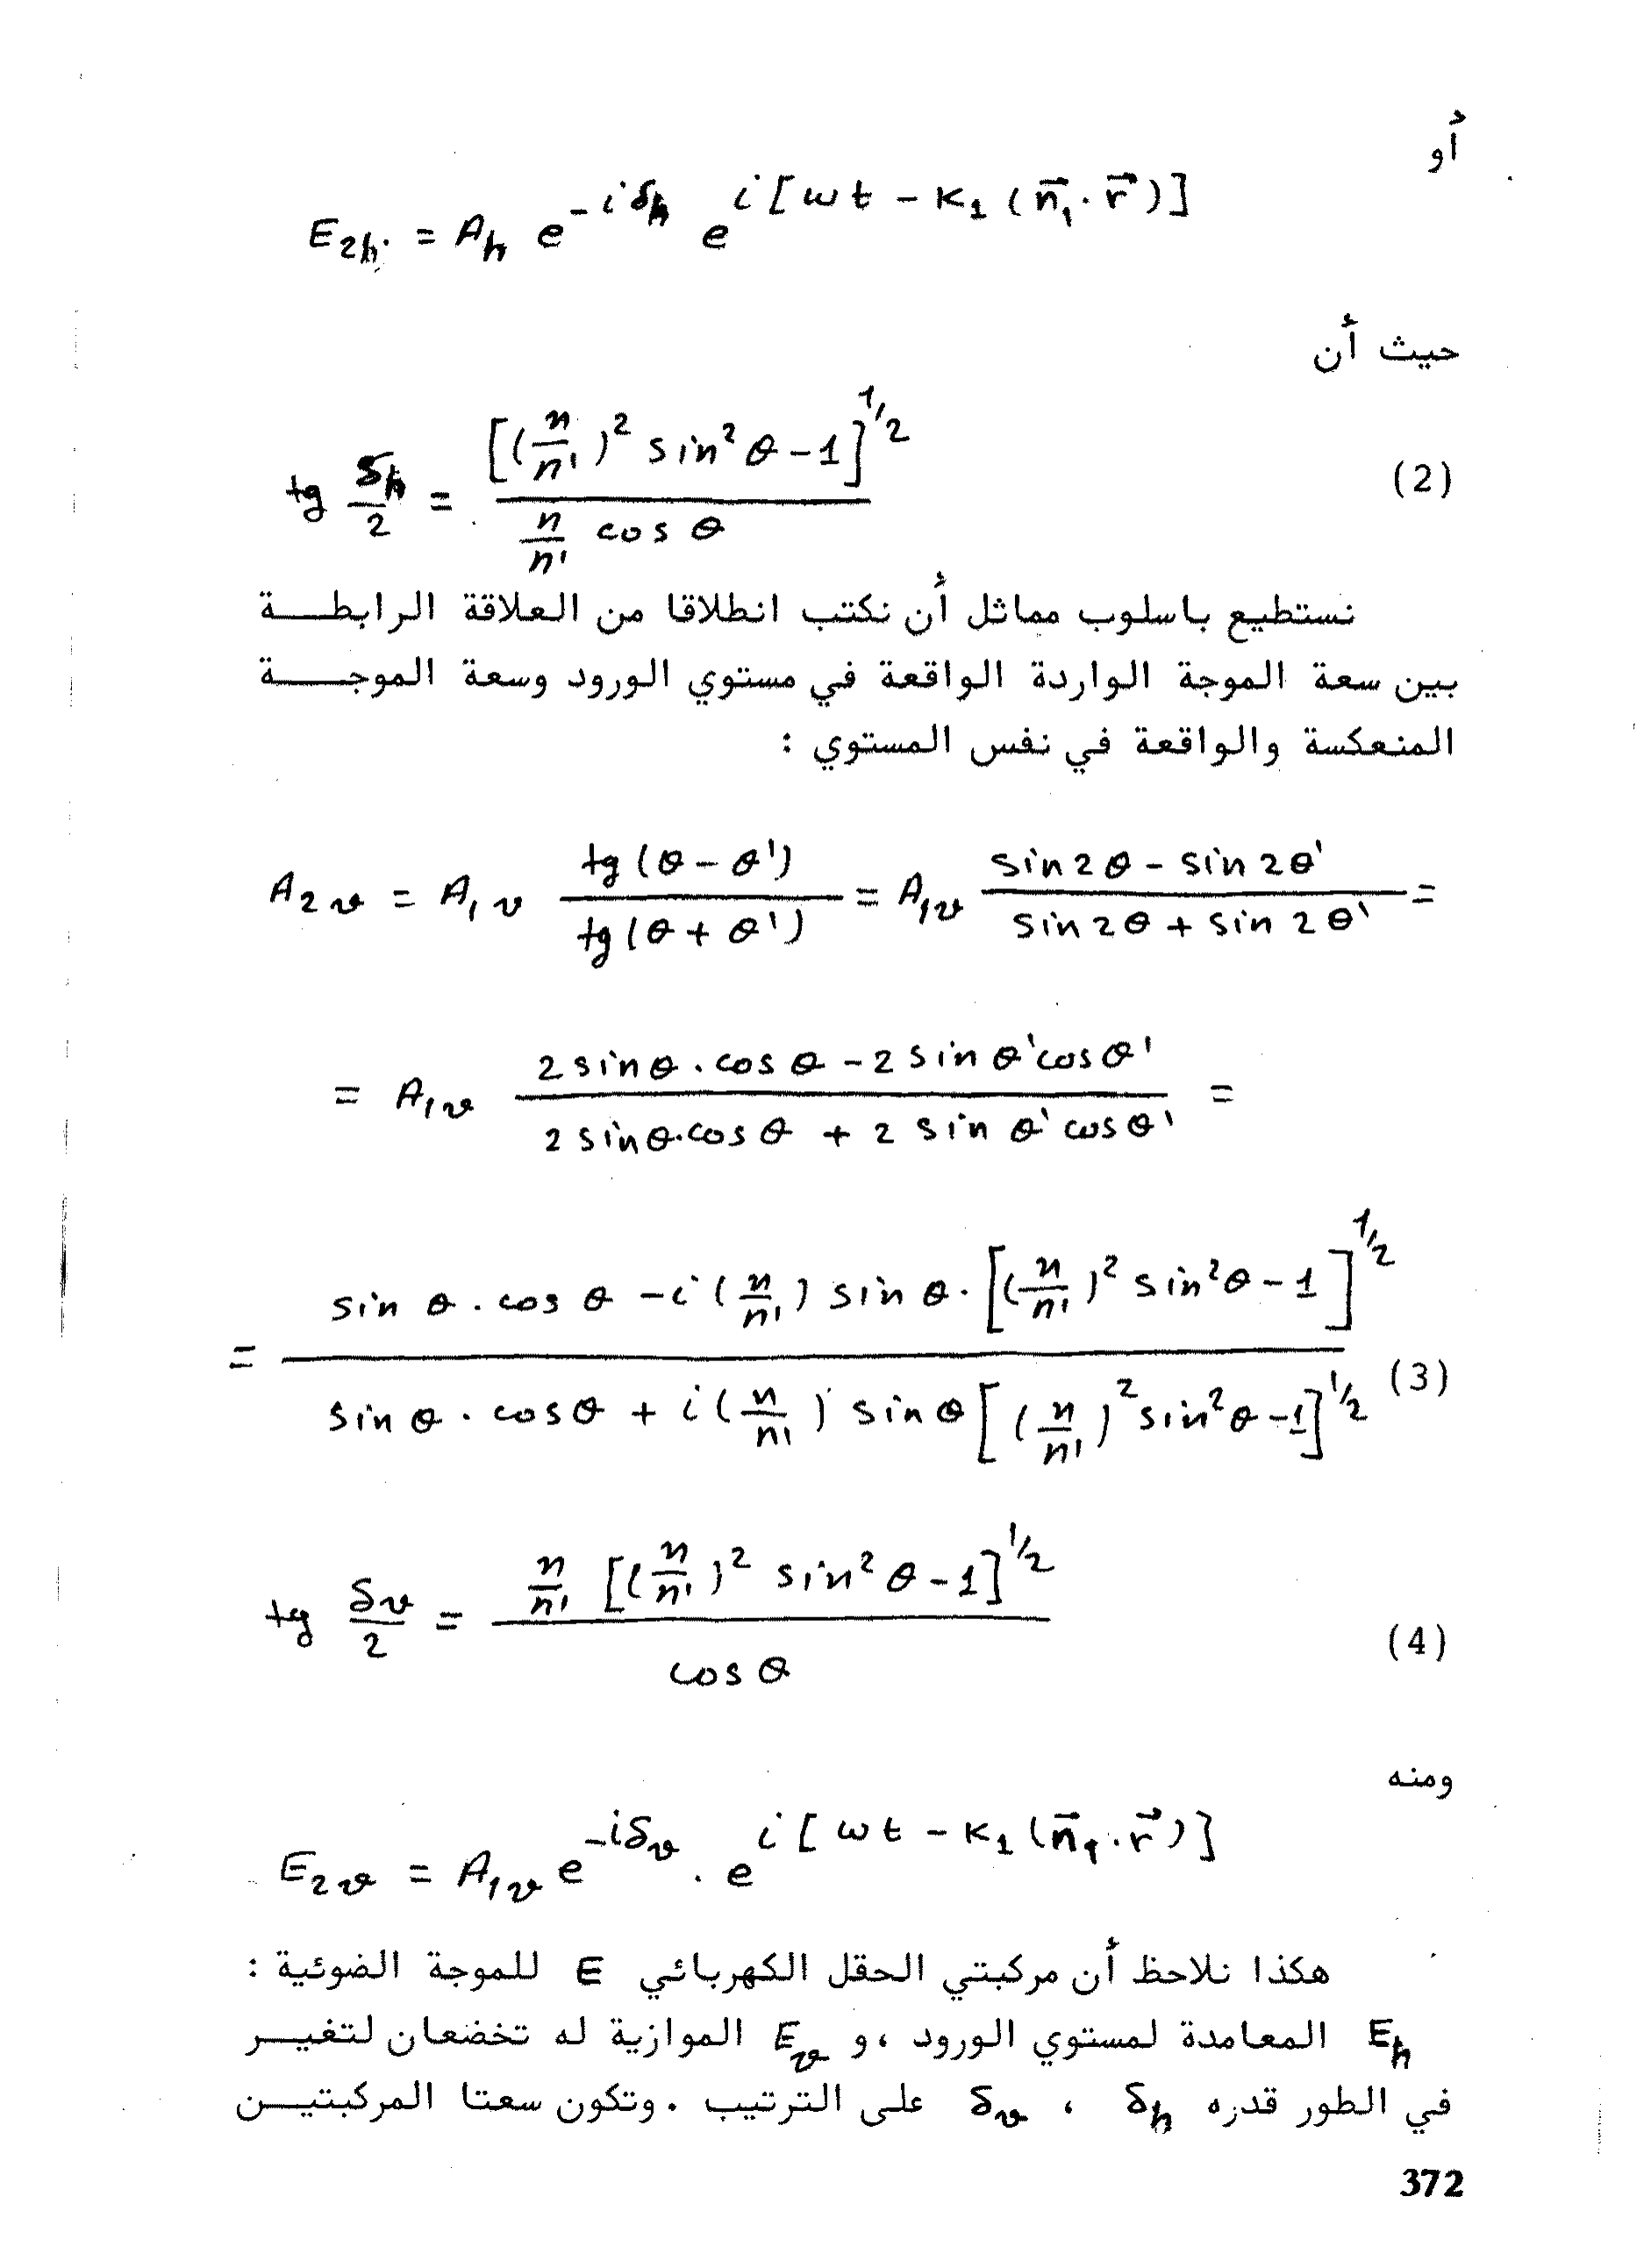 أو
E₂ₕ = Aₕ e^{-iδₕ} e^{i[ωt - K₁(n⃗₁·r⃗)]}
حيث أن
tg δₕ/2 = [(n/n')² sin²θ - 1]^{1/2} / (n/n' cos θ) (2)
نستطيع باسلوب مماثل أن نكتب انطلاقا من العلاقة الرابطة
بين سعة الموجة الواردة الواقعة في مستوي الورود وسعة الموجة
المنعكسة والواقعة في نفس المستوي :
A_{2v} = A_{1v} tg(θ - θ') / tg(θ + θ') = A_{1v} (sin 2θ - sin 2θ') / (sin 2θ + sin 2θ') =
= A_{1v} (2 sin θ . cos θ - 2 sin θ' cos θ') / (2 sin θ . cos θ + 2 sin θ' cos θ') =
= (sin θ . cos θ - i(n/n') sin θ . [(n/n')² sin²θ - 1]^{1/2}) / (sin θ . cos θ + i(n/n') sin θ [(n/n')² sin²θ - 1]^{1/2}) (3)
tg δ_v/2 = n/n' [(n/n')² sin²θ - 1]^{1/2} / cos θ (4)
ومنه
E_{2v} = A_{1v} e^{-iδ_v} . e^{i[ωt - K₁(n⃗₁·r⃗)]}
هكذا نلاحظ أن مركبتي الحقل الكهربائي E للموجة الضوئية :
Eₕ المعامدة لمستوي الورود ، و E_v الموازية له تخضعان لتغير
في الطور قدره δₕ ، δ_v على الترتيب . وتكون سعتا المركبتين
372